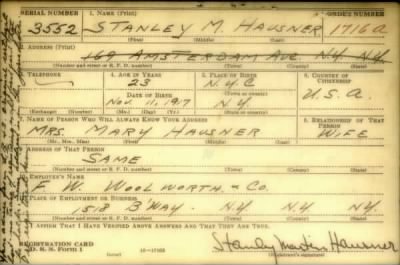 SERIAL NUMBER 1. NAME (Print) ORDER NUMBER
3552 STANLEY M HAUSNER 1716a
(First) (Middle) (Last)
2. ADDRESS (Print)
168 AMSTERDAM AVE N.Y. N.Y.
(Number and street or R. F. D. number) (Town) (County) (State)
3. TELEPHONE 4. AGE IN YEARS 5. PLACE OF BIRTH 6. COUNTRY OF CITIZENSHIP
23 N.Y.C
DATE OF BIRTH (Town or county)
NOV. 11, 1917 N.Y. U.S.A.
(Exchange) (Number) (Mo.) (Day) (Yr.) (State or country)
7. NAME OF PERSON WHO WILL ALWAYS KNOW YOUR ADDRESS 8. RELATIONSHIP OF THAT PERSON
MRS. MARY HAUSNER WIFE
(Mr., Mrs., Miss) (First) (Middle) (Last)
9. ADDRESS OF THAT PERSON
SAME
(Number and street or R. F. D. number) (Town) (County) (State)
10. EMPLOYER'S NAME
F. W. WOOLWORTH & CO.
11. PLACE OF EMPLOYMENT OR BUSINESS
1518 B'WAY N.Y. N.Y. N.Y.
(Number and street or R. F. D. number) (Town) (County) (State)
I AFFIRM THAT I HAVE VERIFIED ABOVE ANSWERS AND THAT THEY ARE TRUE.
REGISTRATION CARD
D. S. S. Form 1 16-17105 Stanley Martin Hausner
(over) (Registrant's signature)